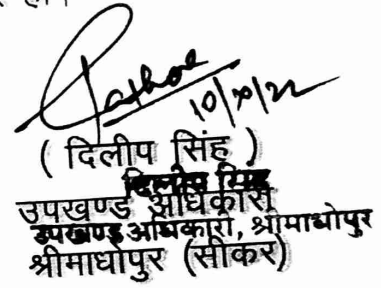 10/10/22
( दिलीप सिंह )
दिलीप सिंह
उपखण्ड अधिकारी
उपखण्ड अधिकारी, श्रीमाधोपुर
श्रीमाधोपुर (सीकर)